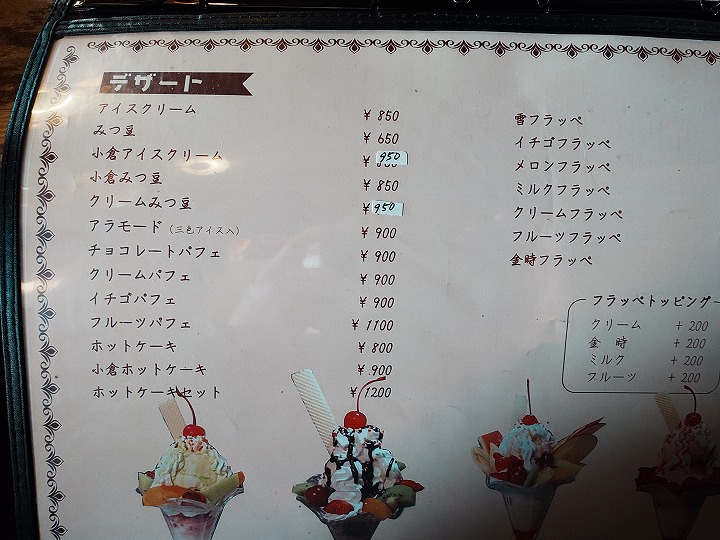 デザート
アイスクリーム ¥ 850
みつ豆 ¥ 650
小倉アイスクリーム ¥ 950
小倉みつ豆 ¥ 850
クリームみつ豆 ¥ 950
アラモード (三色アイス入) ¥ 900
チョコレートパフェ ¥ 900
クリームパフェ ¥ 900
イチゴパフェ ¥ 900
フルーツパフェ ¥ 1100
ホットケーキ ¥ 800
小倉ホットケーキ ¥ 900
ホットケーキセット ¥ 1200
雪フラッペ
イチゴフラッペ
メロンフラッペ
ミルクフラッペ
クリームフラッペ
フルーツフラッペ
金時フラッペ
フラッペトッピング
クリーム + 200
金 時 + 200
ミルク + 200
フルーツ + 200